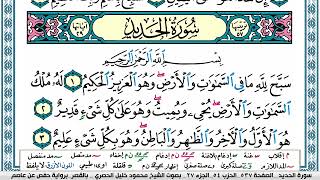 سُورَةُ الحَدِيدِ
بِسْمِ ٱللَّهِ ٱلرَّحْمَٰنِ ٱلرَّحِيمِ
سَبَّحَ لِلَّهِ مَا فِى ٱلسَّمَٰوَٰتِ وَٱلْأَرْضِ وَهُوَ ٱلْعَزِيزُ ٱلْحَكِيمُ ١ لَهُۥ مُلْكُ
ٱلسَّمَٰوَٰتِ وَٱلْأَرْضِ يُحْىِۦ وَيُمِيتُ وَهُوَ عَلَىٰ كُلِّ شَىْءٍ قَدِيرٌ ٢
هُوَ ٱلْأَوَّلُ وَٱلْءَاخِرُ وَٱلظَّٰهِرُ وَٱلْبَاطِنُ وَهُوَ بِكُلِّ شَىْءٍ عَلِيمٌ ٣
سورة الحديد الصفحة ٥٣٧ السورة ٥٧ الجزء ٢٧ بصوت الشيخ محمود خليل الحصري بالقصر برواية حفص عن عاصم